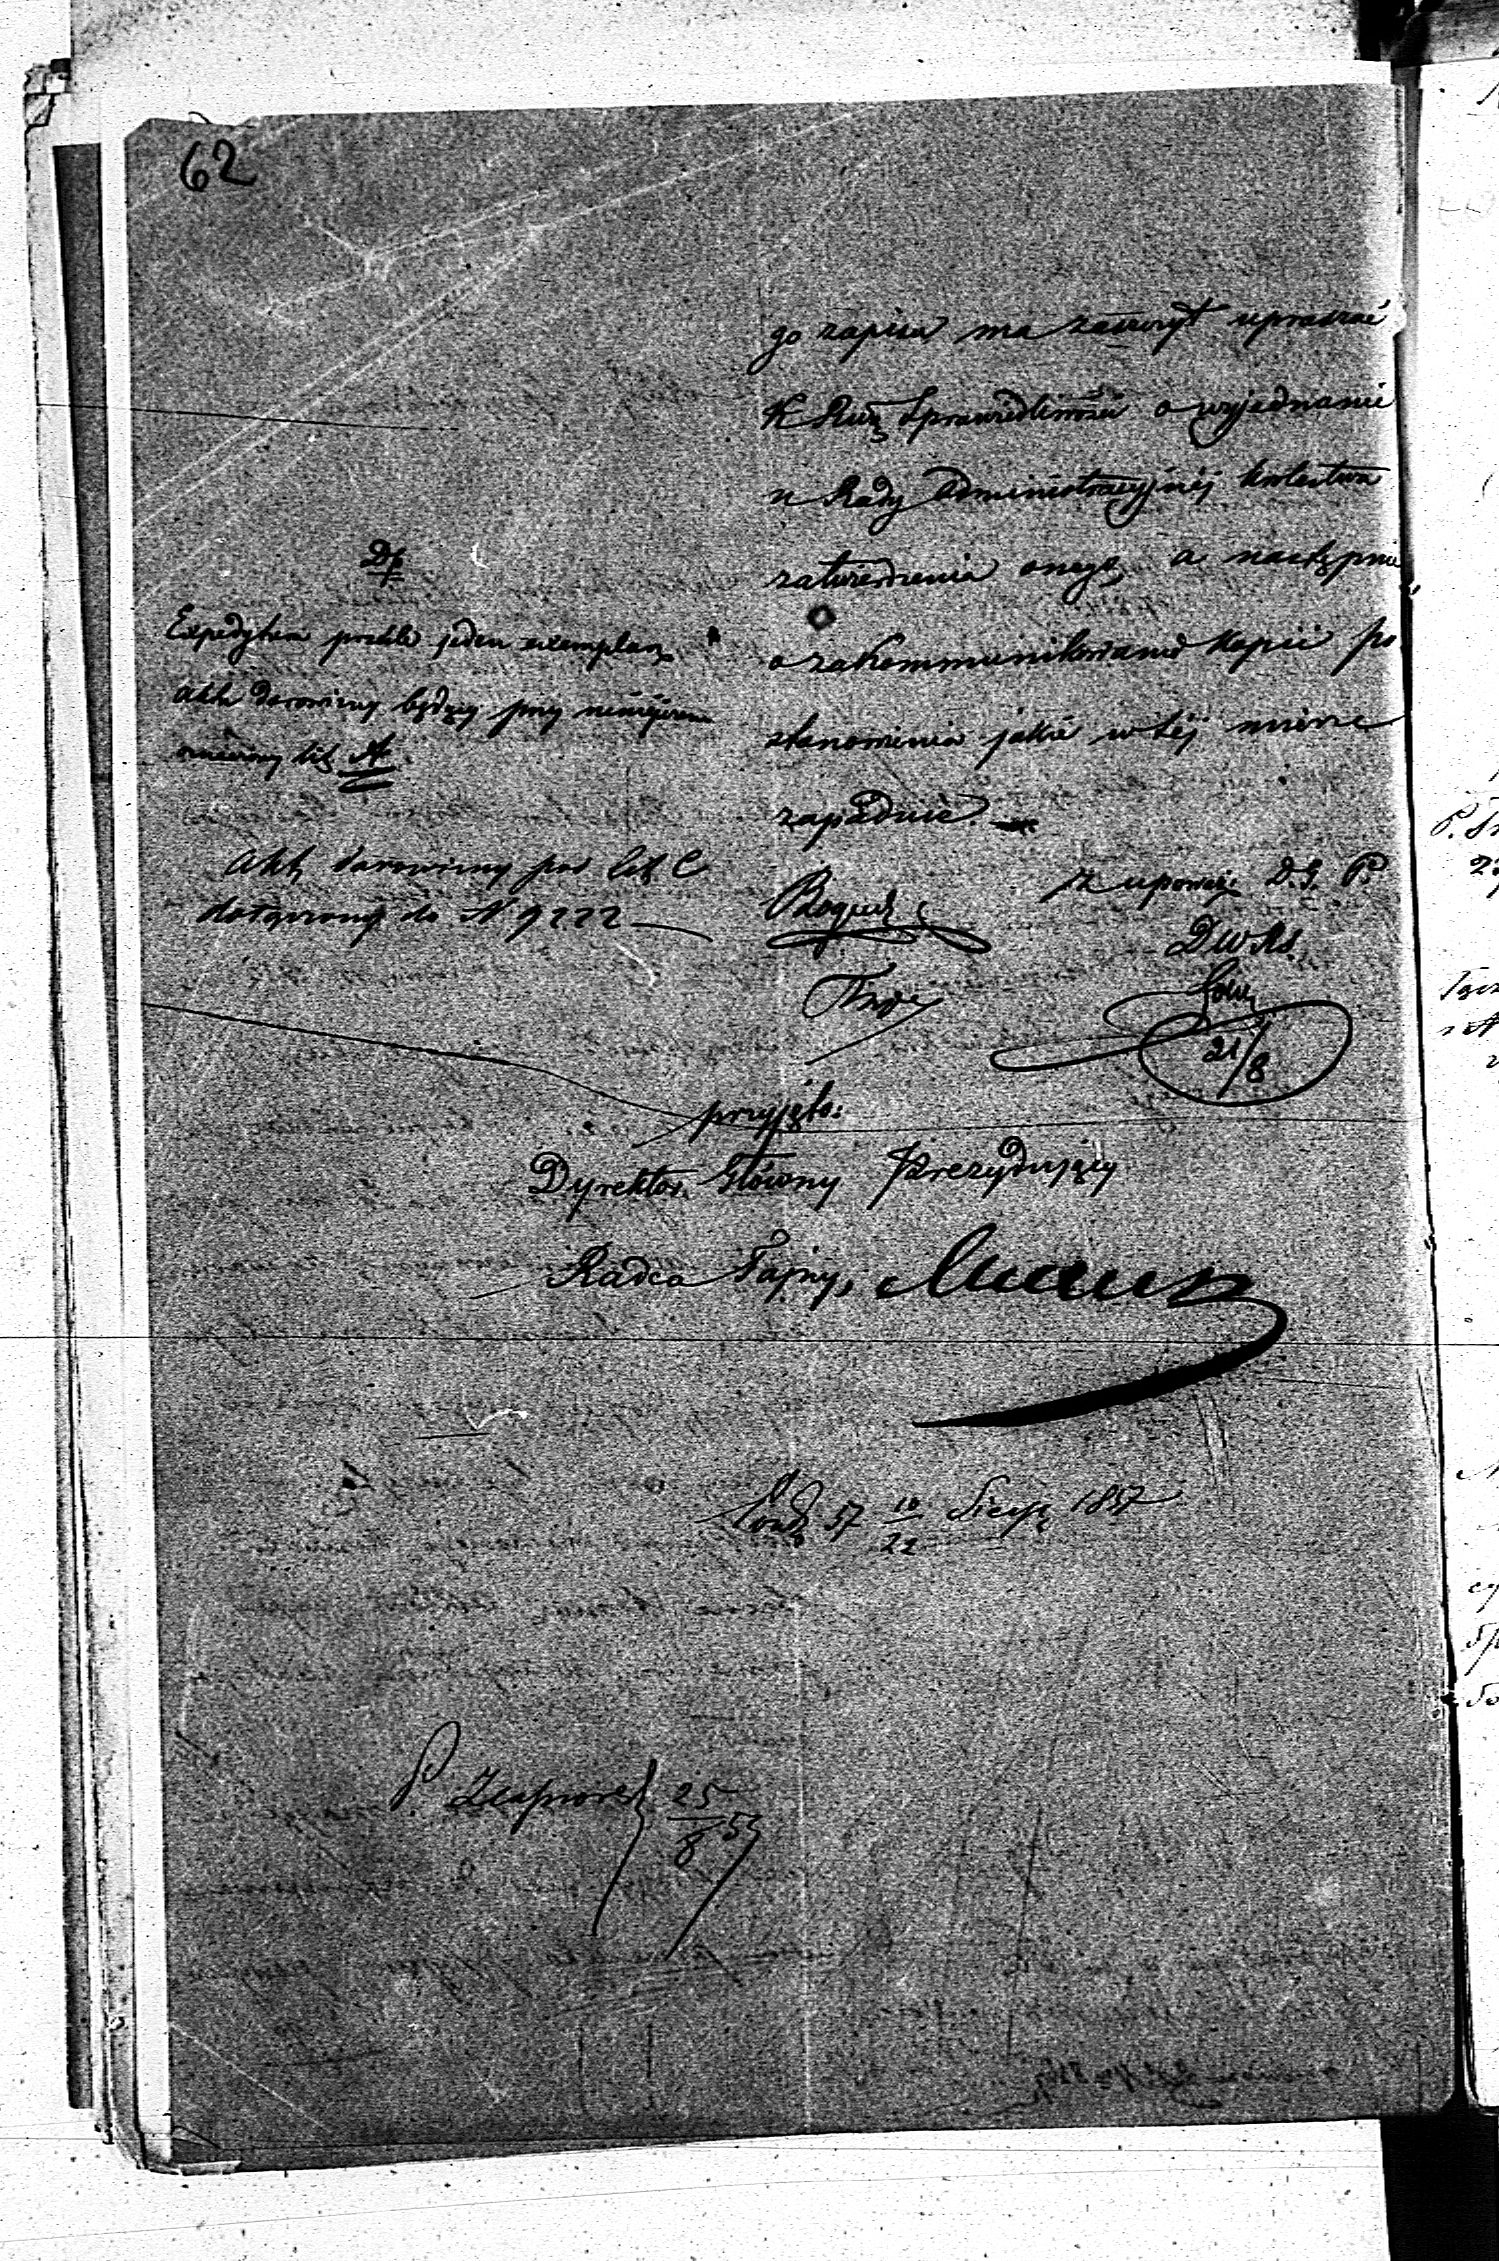 62
go zapisu ma zaszczyt upraszać
K. Rząd. Sprawiedliwości o wyjednanie
u Rady Administracyjnéj Królestwa
zatwierdzenia onego, a następnie
o zakommunikowanie kopii po
stanowienia jakie w téj mierze
zapadnie.
Dp
Expedytura prześle jeden exemplarz
aktu darowizny będący przy niniejszem
znaczony lit. A.
Akt darowizny pod lit. C
dołączony do N 9222
Z upoważ. D. G. P.
D W
21/8
przyjęto:
Dyrektor Główny Prezydujący
Radca Tajny,
57 10/22 Sierp. 1857
P. 25/8 57